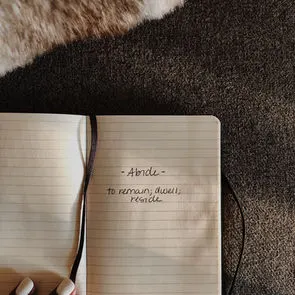 - Abide -
to remain; dwell;
reside